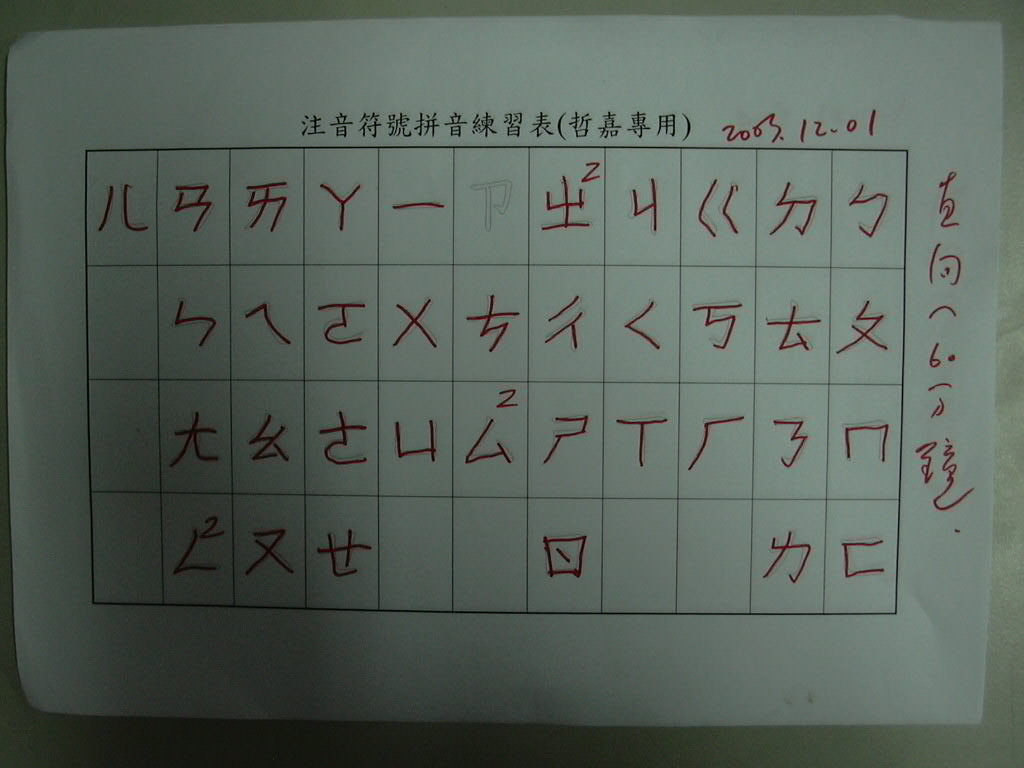 注音符號拼音練習表(哲嘉專用) 2003.12.01
ㄦ ㄢ ㄞ ㄚ ㄧ ㄗ ㄓ2 ㄐ ㄍ ㄉ ㄅ
ㄣ ㄟ ㄛ ㄨ ㄘ ㄔ ㄑ ㄎ ㄊ ㄆ
ㄤ ㄠ ㄜ ㄩ ㄙ2 ㄕ ㄒ ㄏ ㄋ ㄇ
ㄥ2 ㄡ ㄝ ㄖ ㄌ ㄈ
直向(60分鐘.